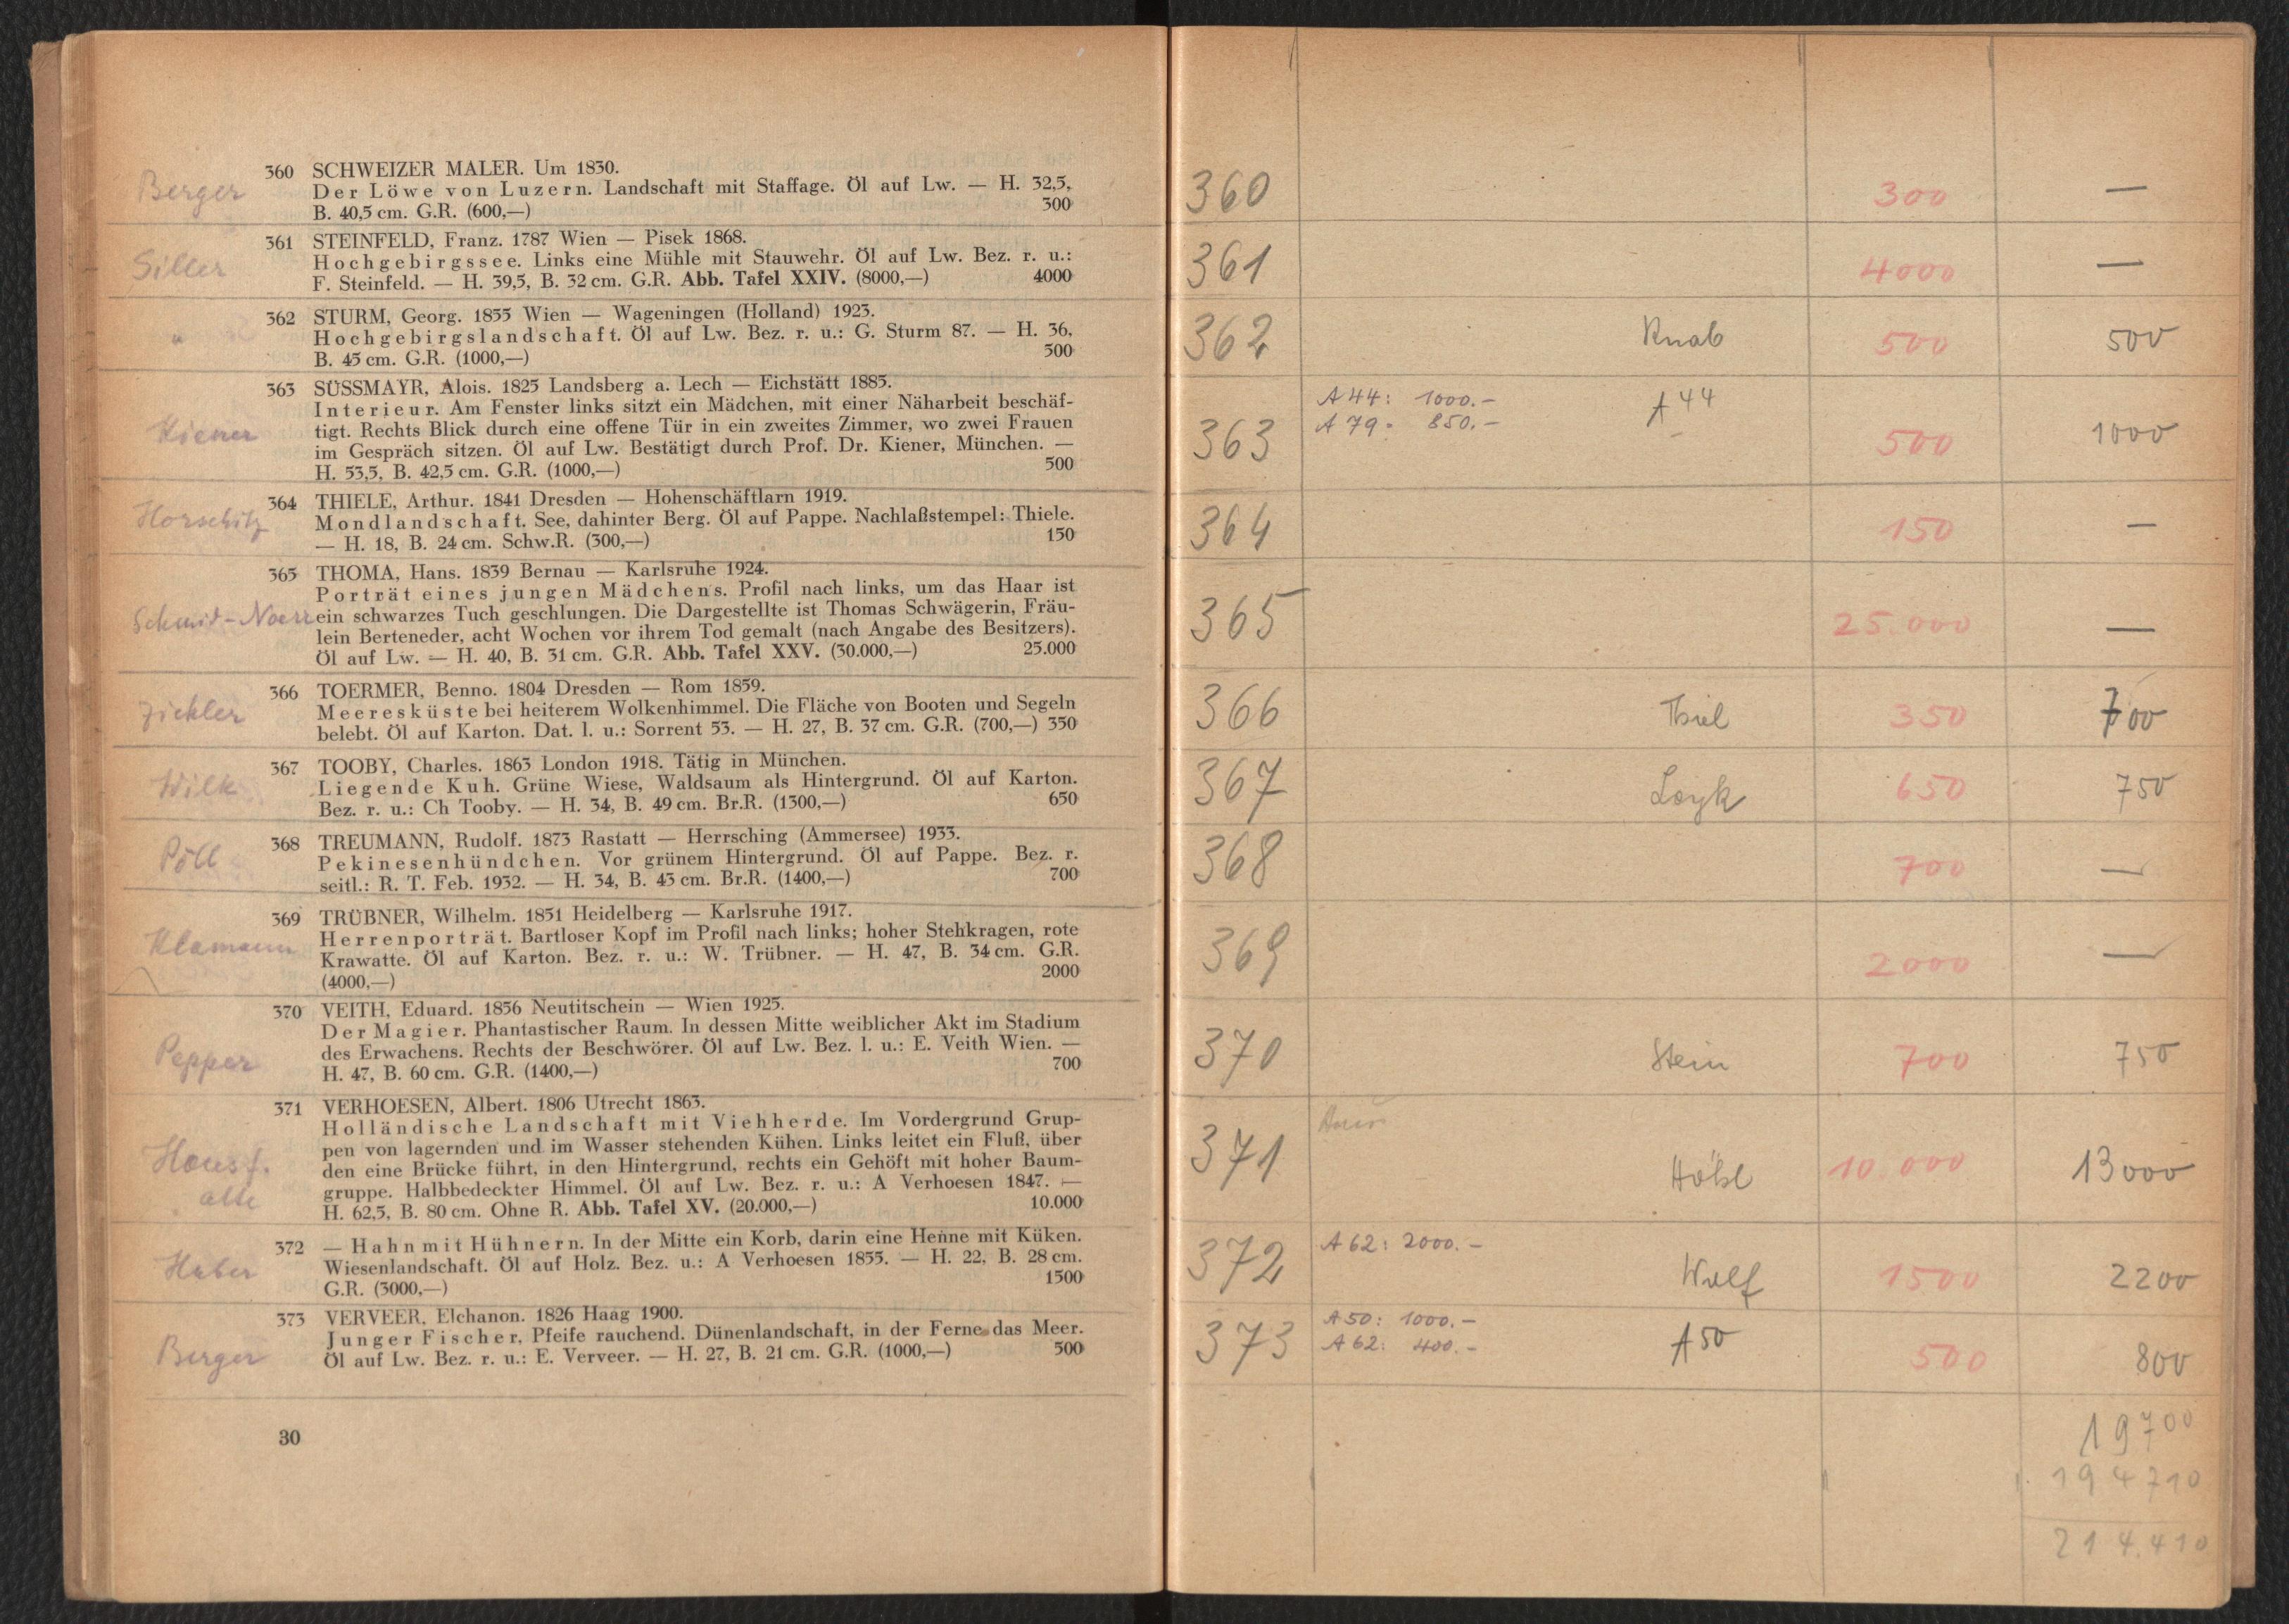 Berger
360 SCHWEIZER MALER. Um 1830.
Der Löwe von Luzern. Landschaft mit Staffage. Öl auf Lw. — H. 32,5,
B. 40,5 cm. G.R. (600,—) 300
Siller
361 STEINFELD, Franz. 1787 Wien — Pisek 1868.
Hochgebirgssee. Links eine Mühle mit Stauwehr. Öl auf Lw. Bez. r. u.:
F. Steinfeld. — H. 39,5, B. 32 cm. G.R. Abb. Tafel XXIV. (8000,—) 4000
"
362 STURM, Georg. 1855 Wien — Wageningen (Holland) 1923.
Hochgebirgslandschaft. Öl auf Lw. Bez. r. u.: G. Sturm 87. — H. 36,
B. 45 cm. G.R. (1000,—) 500
Kiener
363 SÜSSMAYR, Alois. 1825 Landsberg a. Lech — Eichstätt 1885.
Interieur. Am Fenster links sitzt ein Mädchen, mit einer Näharbeit beschäf-
tigt. Rechts Blick durch eine offene Tür in ein zweites Zimmer, wo zwei Frauen
im Gespräch sitzen. Öl auf Lw. Bestätigt durch Prof. Dr. Kiener, München. —
H. 53,5, B. 42,5 cm. G.R. (1000,—) 500
Horschitz
364 THIELE, Arthur. 1841 Dresden — Hohenschäftlarn 1919.
Mondlandschaft. See, dahinter Berg. Öl auf Pappe. Nachlaßstempel: Thiele.
— H. 18, B. 24 cm. Schw.R. (300,—) 150
Schmid-Noerr
365 THOMA, Hans. 1839 Bernau — Karlsruhe 1924.
Porträt eines jungen Mädchens. Profil nach links, um das Haar ist
ein schwarzes Tuch geschlungen. Die Dargestellte ist Thomas Schwägerin, Fräu-
lein Berteneder, acht Wochen vor ihrem Tod gemalt (nach Angabe des Besitzers).
Öl auf Lw. — H. 40, B. 31 cm. G.R. Abb. Tafel XXV. (30.000,—) 25.000
Zickler
366 TOERMER, Benno. 1804 Dresden — Rom 1859.
Meeresküste bei heiterem Wolkenhimmel. Die Fläche von Booten und Segeln
belebt. Öl auf Karton. Dat. l. u.: Sorrent 53. — H. 27, B. 37 cm. G.R. (700,—) 350
Wilk
367 TOOBY, Charles. 1863 London 1918. Tätig in München.
Liegende Kuh. Grüne Wiese, Waldsaum als Hintergrund. Öl auf Karton.
Bez. r. u.: Ch Tooby. — H. 34, B. 49 cm. Br.R. (1300,—) 650
Pöll
368 TREUMANN, Rudolf. 1873 Rastatt — Herrsching (Ammersee) 1933.
Pekinesenhündchen. Vor grünem Hintergrund. Öl auf Pappe. Bez. r.
seitl.: R. T. Feb. 1932. — H. 34, B. 43 cm. Br.R. (1400,—) 700
Klamann
369 TRÜBNER, Wilhelm. 1851 Heidelberg — Karlsruhe 1917.
Herrenporträt. Bartloser Kopf im Profil nach links; hoher Stehkragen, rote
Krawatte. Öl auf Karton. Bez. r. u.: W. Trübner. — H. 47, B. 34 cm. G.R.
(4000,—) 2000
Pepper
370 VEITH, Eduard. 1856 Neutitschein — Wien 1925.
Der Magier. Phantastischer Raum. In dessen Mitte weiblicher Akt im Stadium
des Erwachens. Rechts der Beschwörer. Öl auf Lw. Bez. l. u.: E. Veith Wien. —
H. 47, B. 60 cm. G.R. (1400,—) 700
371 VERHOESEN, Albert. 1806 Utrecht 1863.
Holländische Landschaft mit Viehherde. Im Vordergrund Grup-
pen von lagernden und im Wasser stehenden Kühen. Links leitet ein Fluß, über
den eine Brücke führt, in den Hintergrund, rechts ein Gehöft mit hoher Baum-
gruppe. Halbbedeckter Himmel. Öl auf Lw. Bez. r. u.: A Verhoesen 1847. —
H. 62,5, B. 80 cm. Ohne R. Abb. Tafel XV. (20.000,—) 10.000
Huber
372 — Hahn mit Hühnern. In der Mitte ein Korb, darin eine Henne mit Küken.
Wiesenlandschaft. Öl auf Holz. Bez. u.: A Verhoesen 1855. — H. 22, B. 28 cm.
G.R. (3000,—) 1500
Berger
373 VERVEER, Elchanon. 1826 Haag 1900.
Junger Fischer, Pfeife rauchend. Dünenlandschaft, in der Ferne das Meer.
Öl auf Lw. Bez. r. u.: E. Verveer. — H. 27, B. 21 cm. G.R. (1000,—) 500
30
360 300 —
361 4000 —
362 Knab 500 500
A 44: 1000.-
A 79: 850.-
363 A 44 500 1000
364 150 —
365 25.000 —
366 Thiel 350 700
367 Loyk 650 750
368 700 —
369 2000 —
370 Stein 700 750
371 10.000 13000
A 62: 2000.-
372 Wolf 1500 2200
A 50: 1000.-
A 62: 400.-
373 A 50 500 800
19700
194710
214.410